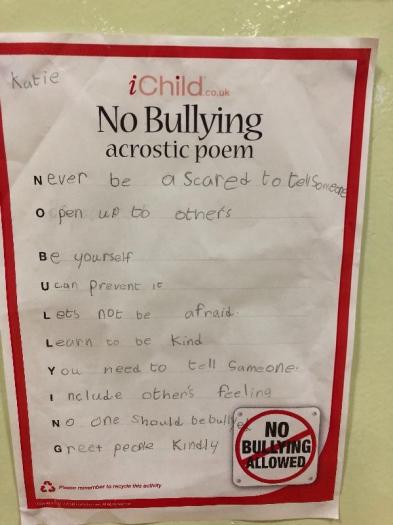 Katie
iChild.co.uk
No Bullying
acrostic poem
Never be a scared to tell someone
Open up to other's
Be yourself
U can prevent it
Lets not be afraid.
Learn to be kind
You need to tell someone.
Include other's feeling
No one should be bullyed
Greet people kindly
NO
BULLYING
ALLOWED
Please remember to recycle this activity